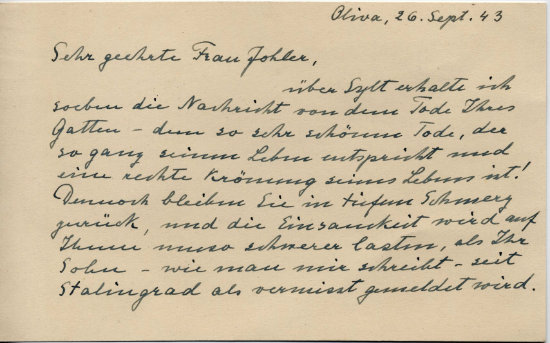 Oliva, 26. Sept. 43
Sehr geehrte Frau Johler,
über Sylt erhalte ich
soeben die Nachricht von dem Tode Ihres
Gatten – dem so sehr schönen Tode, der
so ganz seinem Leben entspricht und
eine rechte Krönung seines Lebens ist!
Dennoch bleiben Sie in tiefem Schmerz
zurück, und die Einsamkeit wird auf
Ihnen umso schwerer lasten, als Ihr
Sohn – wie man mir schreibt – seit
Stalingrad als vermisst gemeldet wird.